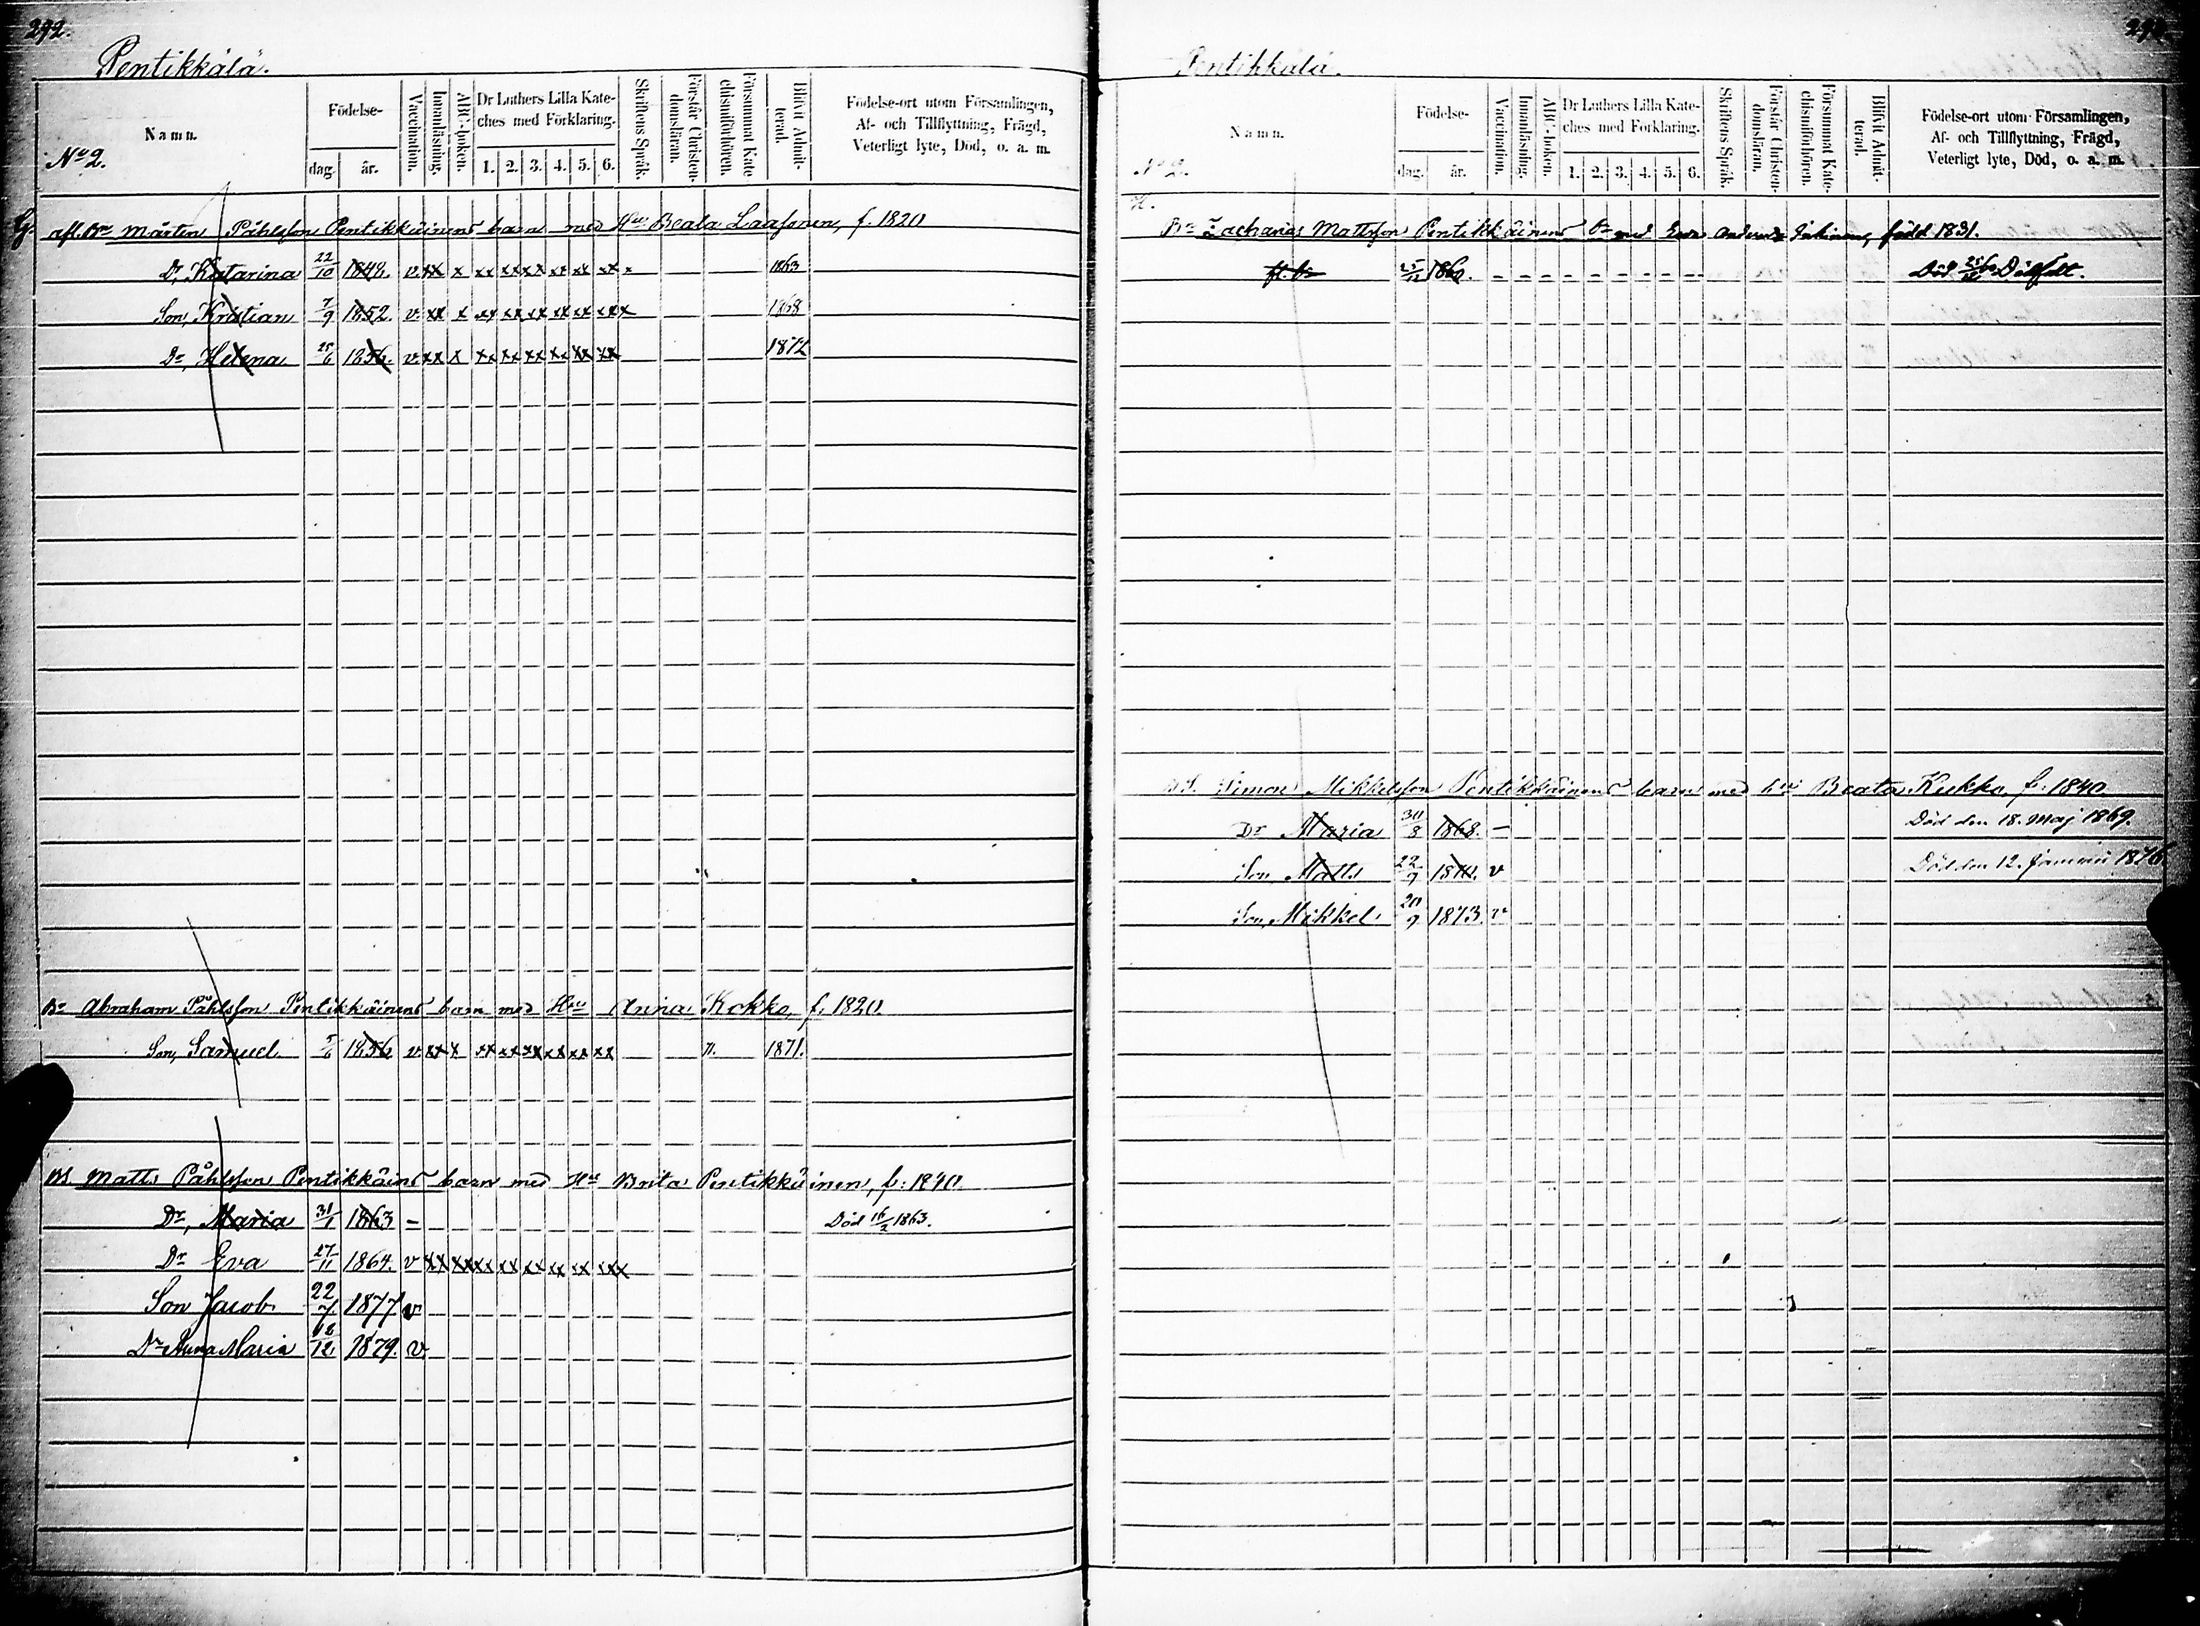 292.
Pentikkälä.
Namn.
Födelse-
dag. år.
Vaccination.
Innanläsning.
ABC-boken.
Dr Luthers Lilla Kate-
ches med Förklaring.
1. 2. 3. 4. 5. 6.
Skriftens Språk.
Förstår Christen-
domsläran.
Försummat Kate-
chismiförhören.
Blifvit Admit-
terad.
Födelse-ort utom Församlingen,
Af- och Tillflyttning, Frägd,
Veterligt lyte, Död, o. a. m.
No 2.
G. afl. Bn Mårten Påhlsson Pentikkäinens barn med Hu Beata Laasonen, f. 1820
Dr, Katarina 22/10 1848. v. xx x xx xx xx xx xx xx x 1863
Son, Kristian 7/9 1852. v. xx x xx xx xx xx xx xxx 1868
Dr, Helena 25/6 1856. v xx x xx xx xx xx xx xx 1872
Bn Abraham Påhlsson Pentikkäinens barn med Hu Anna Kokko, f. 1820.
Son, Samuel. 5/6 1856 v xx x xx xx xx xx xx xx n. 1871.
BS Matts Påhlsson Pentikkäins barn med Hu Brita Pentikkäinen, f: 1840.
Dr, Maria 31/1 1863 – Död 16/2 1863.
Dr Eva 27/11 1864. v xx xx xx xx xx xx xx xxx
Son Jacob 22/7 1877 v
Dr Anna Maria 18/12 1879. v
Pentikkälä.
Namn.
Födelse-
dag. år.
Vaccination.
Innanläsning.
ABC-boken.
Dr Luthers Lilla Kate-
ches med Förklaring.
1. 2. 3. 4. 5. 6.
Skriftens Språk.
Förstår Christen-
domsläran.
Försummat Kate-
chismiförhören.
Blifvit Admit-
terad.
Födelse-ort utom Församlingen,
Af- och Tillflyttning, Frägd,
Veterligt lyte, Död, o. a. m.
No 2.
Bn Zacharias Mattsson Pentikkäinens bn med Eva Andersdr född 1831.
fl. bn 25/12 1860. Död 25/12 Dödfödt.
BS. Simon Mikkelsson Pentikkäinens barn med hu Beata Kukko, f: 1840.
Dr Maria 30/8 1868. – Död den 18. Maj 1869.
Son, Matts 22/9 1870. v Död den 12. Januari 1876
Son, Mikkel 20/9 1873. v